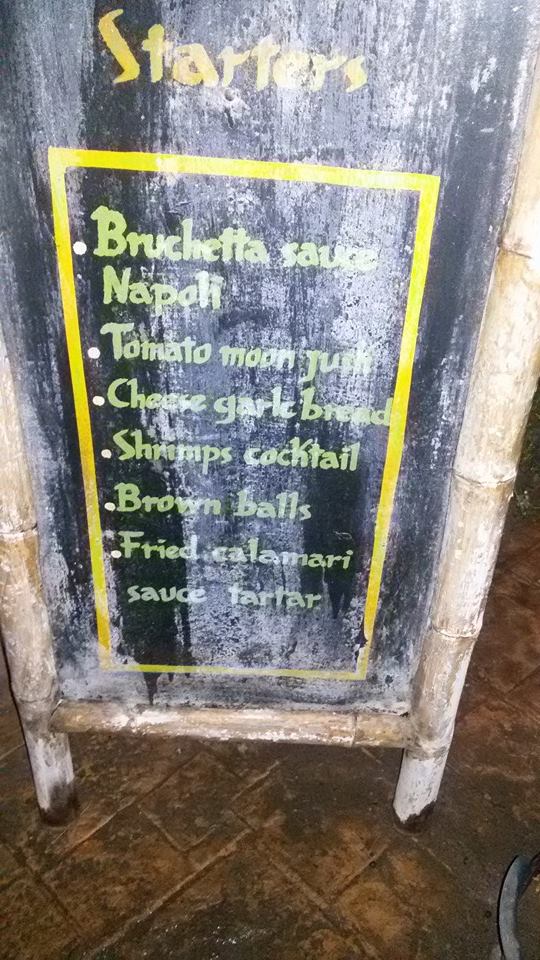 Starters
Bruchetta sauce
Napoli
Tomato moon
Cheese garlc bread
Shrimps cocktail
Brown balls
Fried calamari
sauce tartar